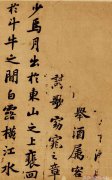 舉酒屬客
誦歌窈窕之章
少焉月出於東山之上裵回
於斗牛之間白露橫江水